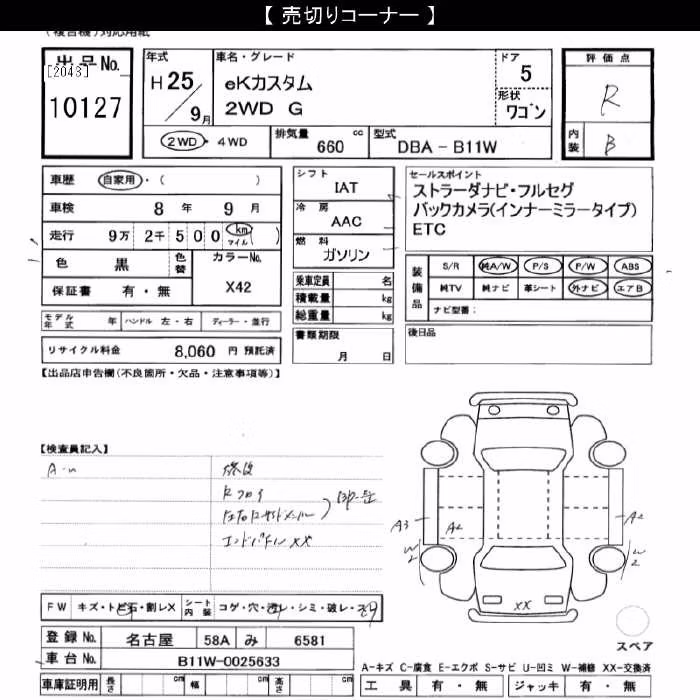 【 売切りコーナー 】
(複合機)対応用紙
出品No.
[2043]
10127
年式
H 25 / 9月
車名・グレード
eKカスタム
2WD G
ドア
5
形状
ワゴン
評価点
R
内装
B
2WD・4WD
排気量 660 cc
型式 DBA - B11W
車歴 自家用・( )
車検 8 年 9 月
走行 9万 2千 5 0 0 km マイル ( )
色 黒 色替
カラーNo.
X42
保証書 有・無
シフト
IAT
冷房
AAC
燃料
ガソリン
乗車定員 名
積載量 kg
総重量 kg
書類期限
月 日
セールスポイント
ストラーダナビ・フルセグ
バックカメラ(インナーミラータイプ)
ETC
装備品
S/R 純A/W P/S P/W ABS
純TV 純ナビ 革シート 外ナビ エアB
ナビ型番:
後日品
モデル年式 年 ハンドル 左・右 ディーラー・並行
リサイクル料金 8,060 円 預託済
【出品店申告欄(不良箇所・欠品・注意事項等)】
【検査員記入】
修復
Rフロア
エンドパネル XX
A3
A2
A2
W2
W2
XX
スペア
FW キズ・トビ石・割レX シート内装 コゲ・穴・汚レ・シミ・破レ・スレ
登録No. 名古屋 58A み 6581
車台No. B11W-0025633
車庫証明用 長さ cm 幅 cm 高さ cm
A-キズ C-腐食 E-エクボ S-サビ U-凹ミ W-補修 XX-交換済
工具 有・無 ジャッキ 有・無